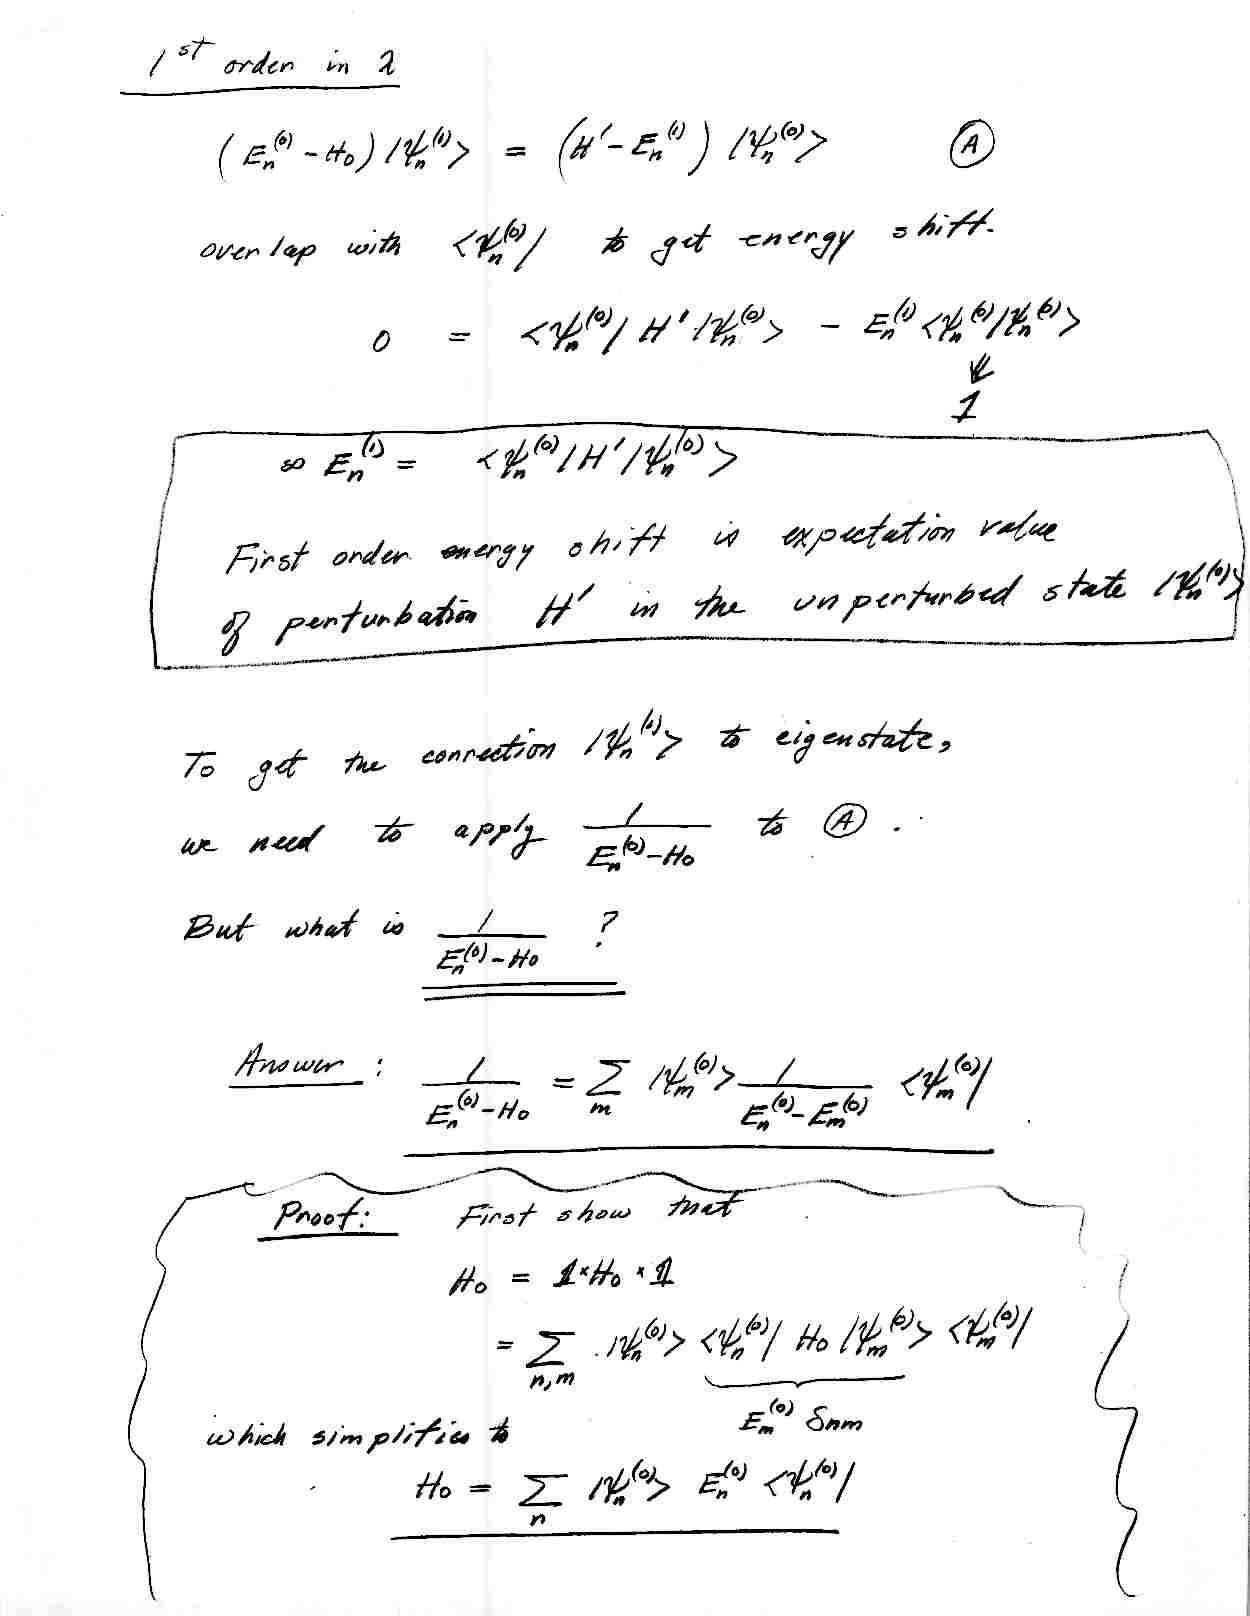 1st order in λ
(En(0) - H0) |ψn(1)> = (H' - En(1)) |ψn(0)> (A)
overlap with <ψn(0)| to get energy shift.
0 = <ψn(0)| H' |ψn(0)> - En(1) <ψn(0)|ψn(0)>
1
so En(1) = <ψn(0)|H'|ψn(0)>
First order energy shift is expectation value
of perturbation H' in the unperturbed state |ψn(0)>
To get the correction |ψn(1)> to eigenstate,
we need to apply 1/(En(0)-H0) to (A).
But what is 1/(En(0)-H0) ?
Answer: 1/(En(0)-H0) = Σm |ψm(0)> 1/(En(0)-Em(0)) <ψm(0)|
Proof: First show that
H0 = 1*H0*1
= Σn,m |ψn(0)> <ψn(0)| H0 |ψm(0)> <ψm(0)|
Em(0) δnm
which simplifies to
H0 = Σn |ψn(0)> En(0) <ψn(0)|